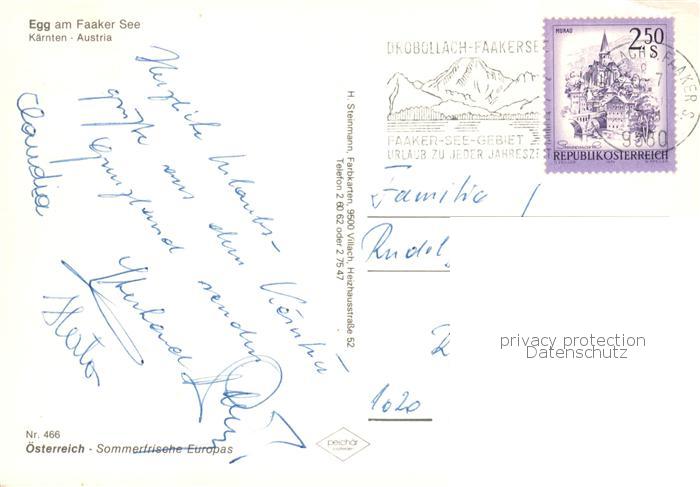 Egg am Faaker See
Kärnten - Austria
Herzliche Urlaubs-
grüße aus dem Kärntner
senden
Claudia
Herta
H. Steinmann, Farbkarten, 9500 Villach, Heizhausstraße 52
Telefon 2 60 62 oder 2 75 47
DROBOLLACH-FAAKERSE
FAAKER-SEE-GEBIET
URLAUB ZU JEDER JAHRESZE
MURAU
2.50
S
REPUBLIK ÖSTERREICH
9580
Familie
Rudol
1020
privacy protection
Datenschutz
Nr. 466
Österreich - Sommerfrische Europas